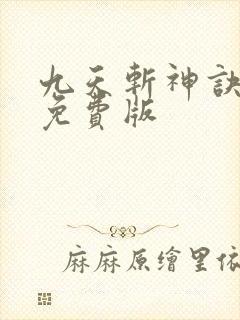 九天斬神訣
免費版
麻麻原繪里依